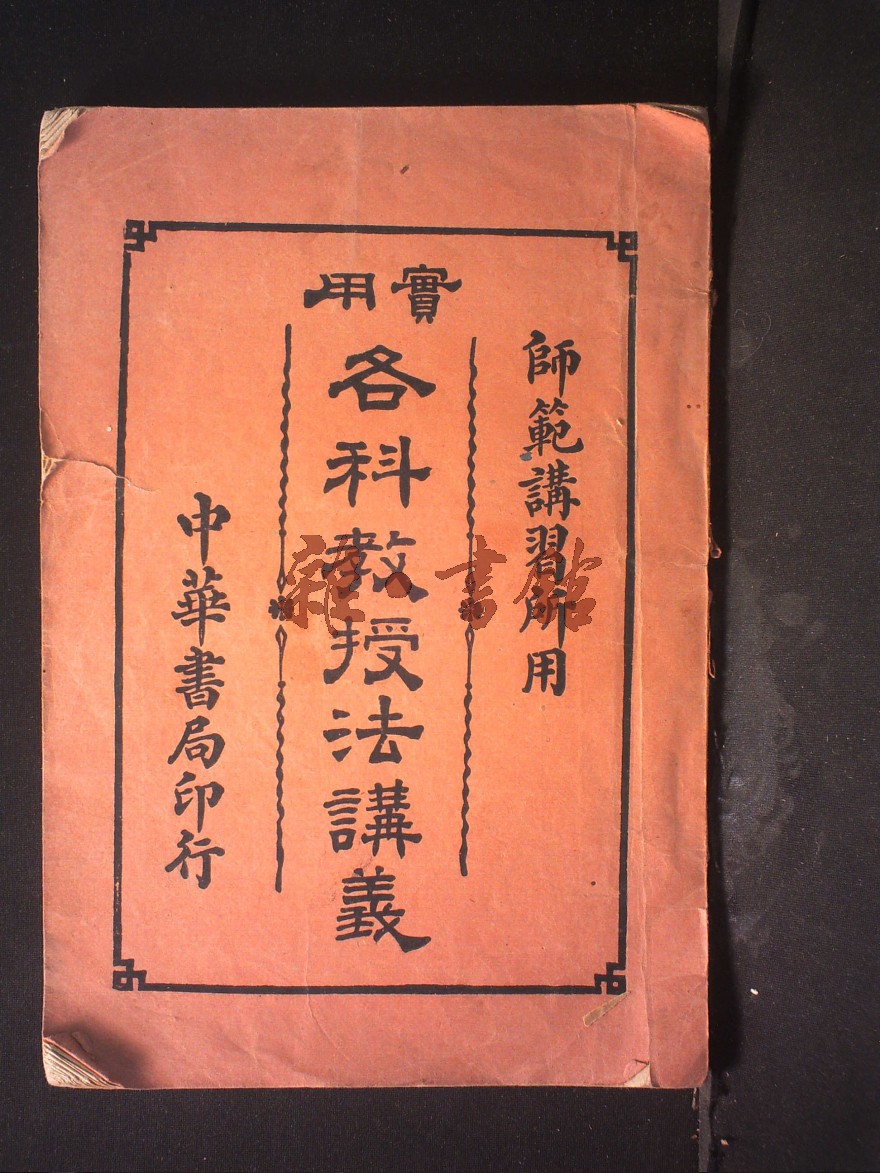 師範講習所用
實用
各科教授法講義
中華書局印行
雜·書館